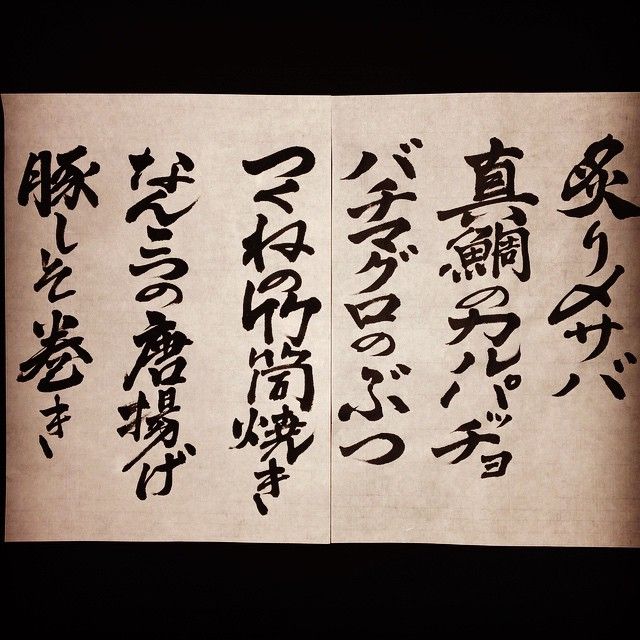 炙り〆サバ
真鯛のカルパッチョ
バチマグロのぶつ
つくねの竹筒焼き
なんこつの唐揚げ
豚しそ巻き